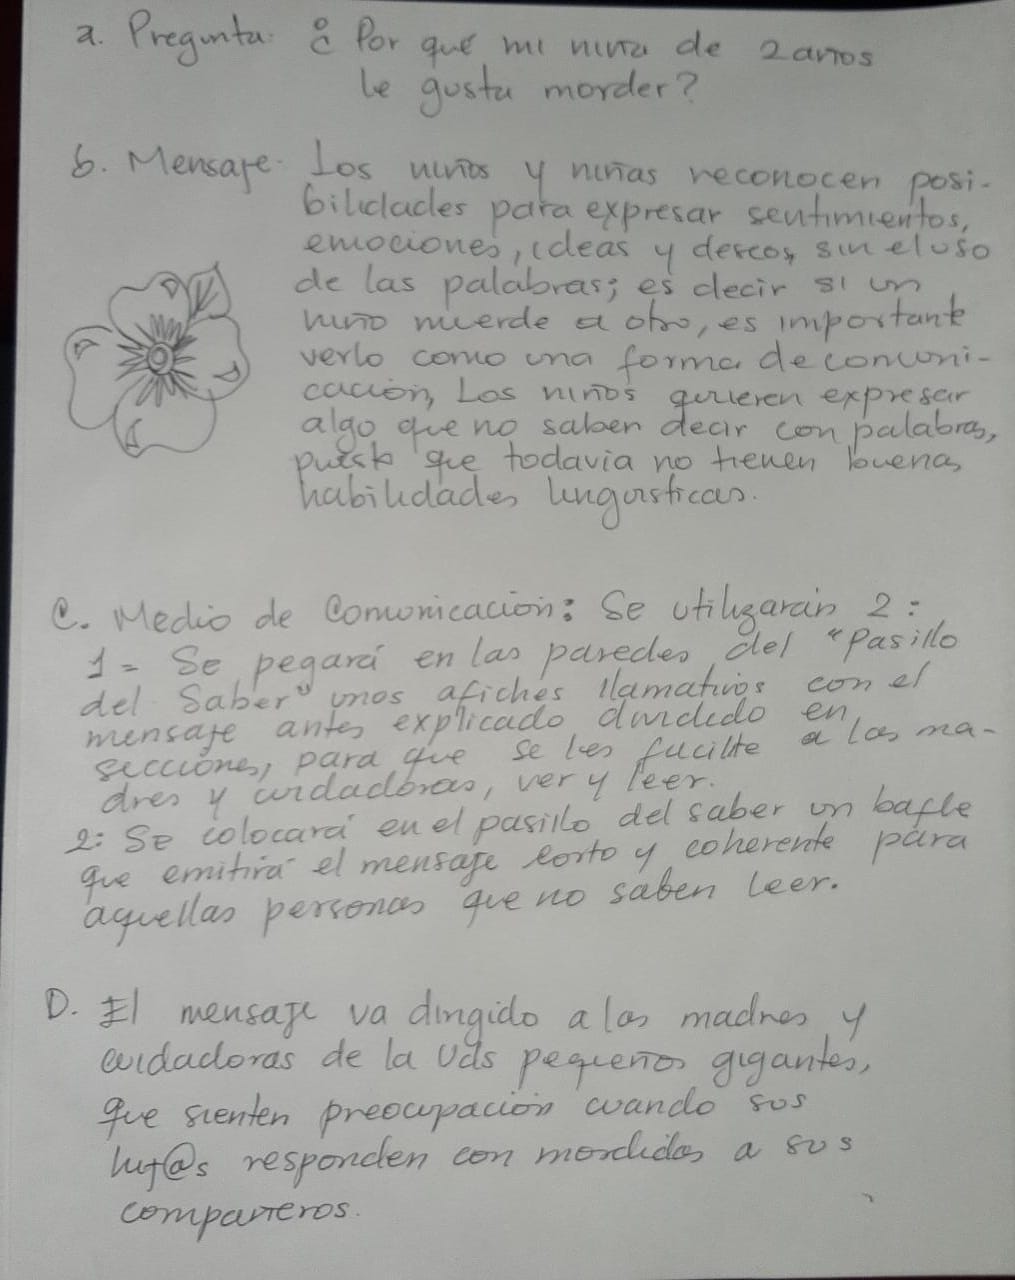 a. Pregunta: ¿Por qué mi niña de 2 años
le gusta morder?
b. Mensaje. Los niños y niñas reconocen posi-
bilidades para expresar sentimientos,
emociones, ideas y deseos, sin el uso
de las palabras; es decir si un
niño muerde a otro, es importante
verlo como una forma de comuni-
cación, Los niños quieren expresar
algo que no saben decir con palabras,
puesto que todavia no tienen buenas
habilidades linguisticas.
C. Medio de Comunicación: Se utilizarán 2:
1= Se pegará en las paredes del "Pasillo
del Saber" unos afiches llamativos con el
mensaje antes explicado dividido en
secciones, para que se les facilite a las ma-
dres y cuidadoras, ver y leer.
2: Se colocará en el pasillo del saber un bafle
que emitirá el mensaje corto y coherente para
aquellas personas que no saben leer.
D. El mensaje va dirigido a las madres y
cuidadoras de la Uds pequeños gigantes,
que sienten preocupación cuando sus
hij@s responden con mordidas a sus
compañeros.